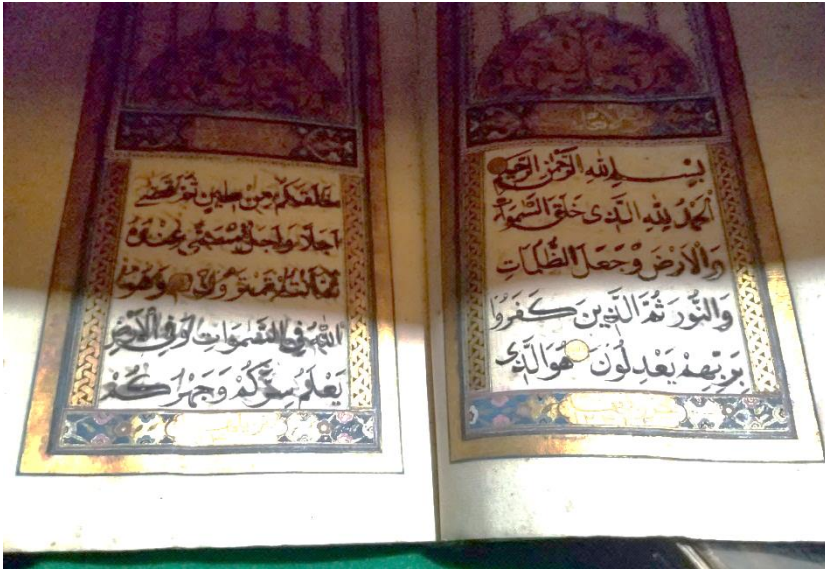 بِسْمِ اللهِ الرَّحْمٰنِ الرَّحِيمِ
اَلْحَمْدُ لِلّٰهِ الَّذِى خَلَقَ السَّمٰوَاتِ
وَالْاَرْضَ وَجَعَلَ الظُّلُمَاتِ
وَالنُّورَ ثُمَّ الَّذِينَ كَفَرُوا
بِرَبِّهِمْ يَعْدِلُونَ هُوَ الَّذِى
خَلَقَكُمْ مِنْ طِينٍ ثُمَّ قَضٰى
اَجَلًا وَاَجَلٌ مُسَمًّى عِنْدَهُ
ثُمَّ اَنْتُمْ تَمْتَرُونَ وَهُوَ
اللهُ فِى السَّمٰوَاتِ وَفِى الْاَرْضِ
يَعْلَمُ سِرَّكُمْ وَجَهْرَكُمْ